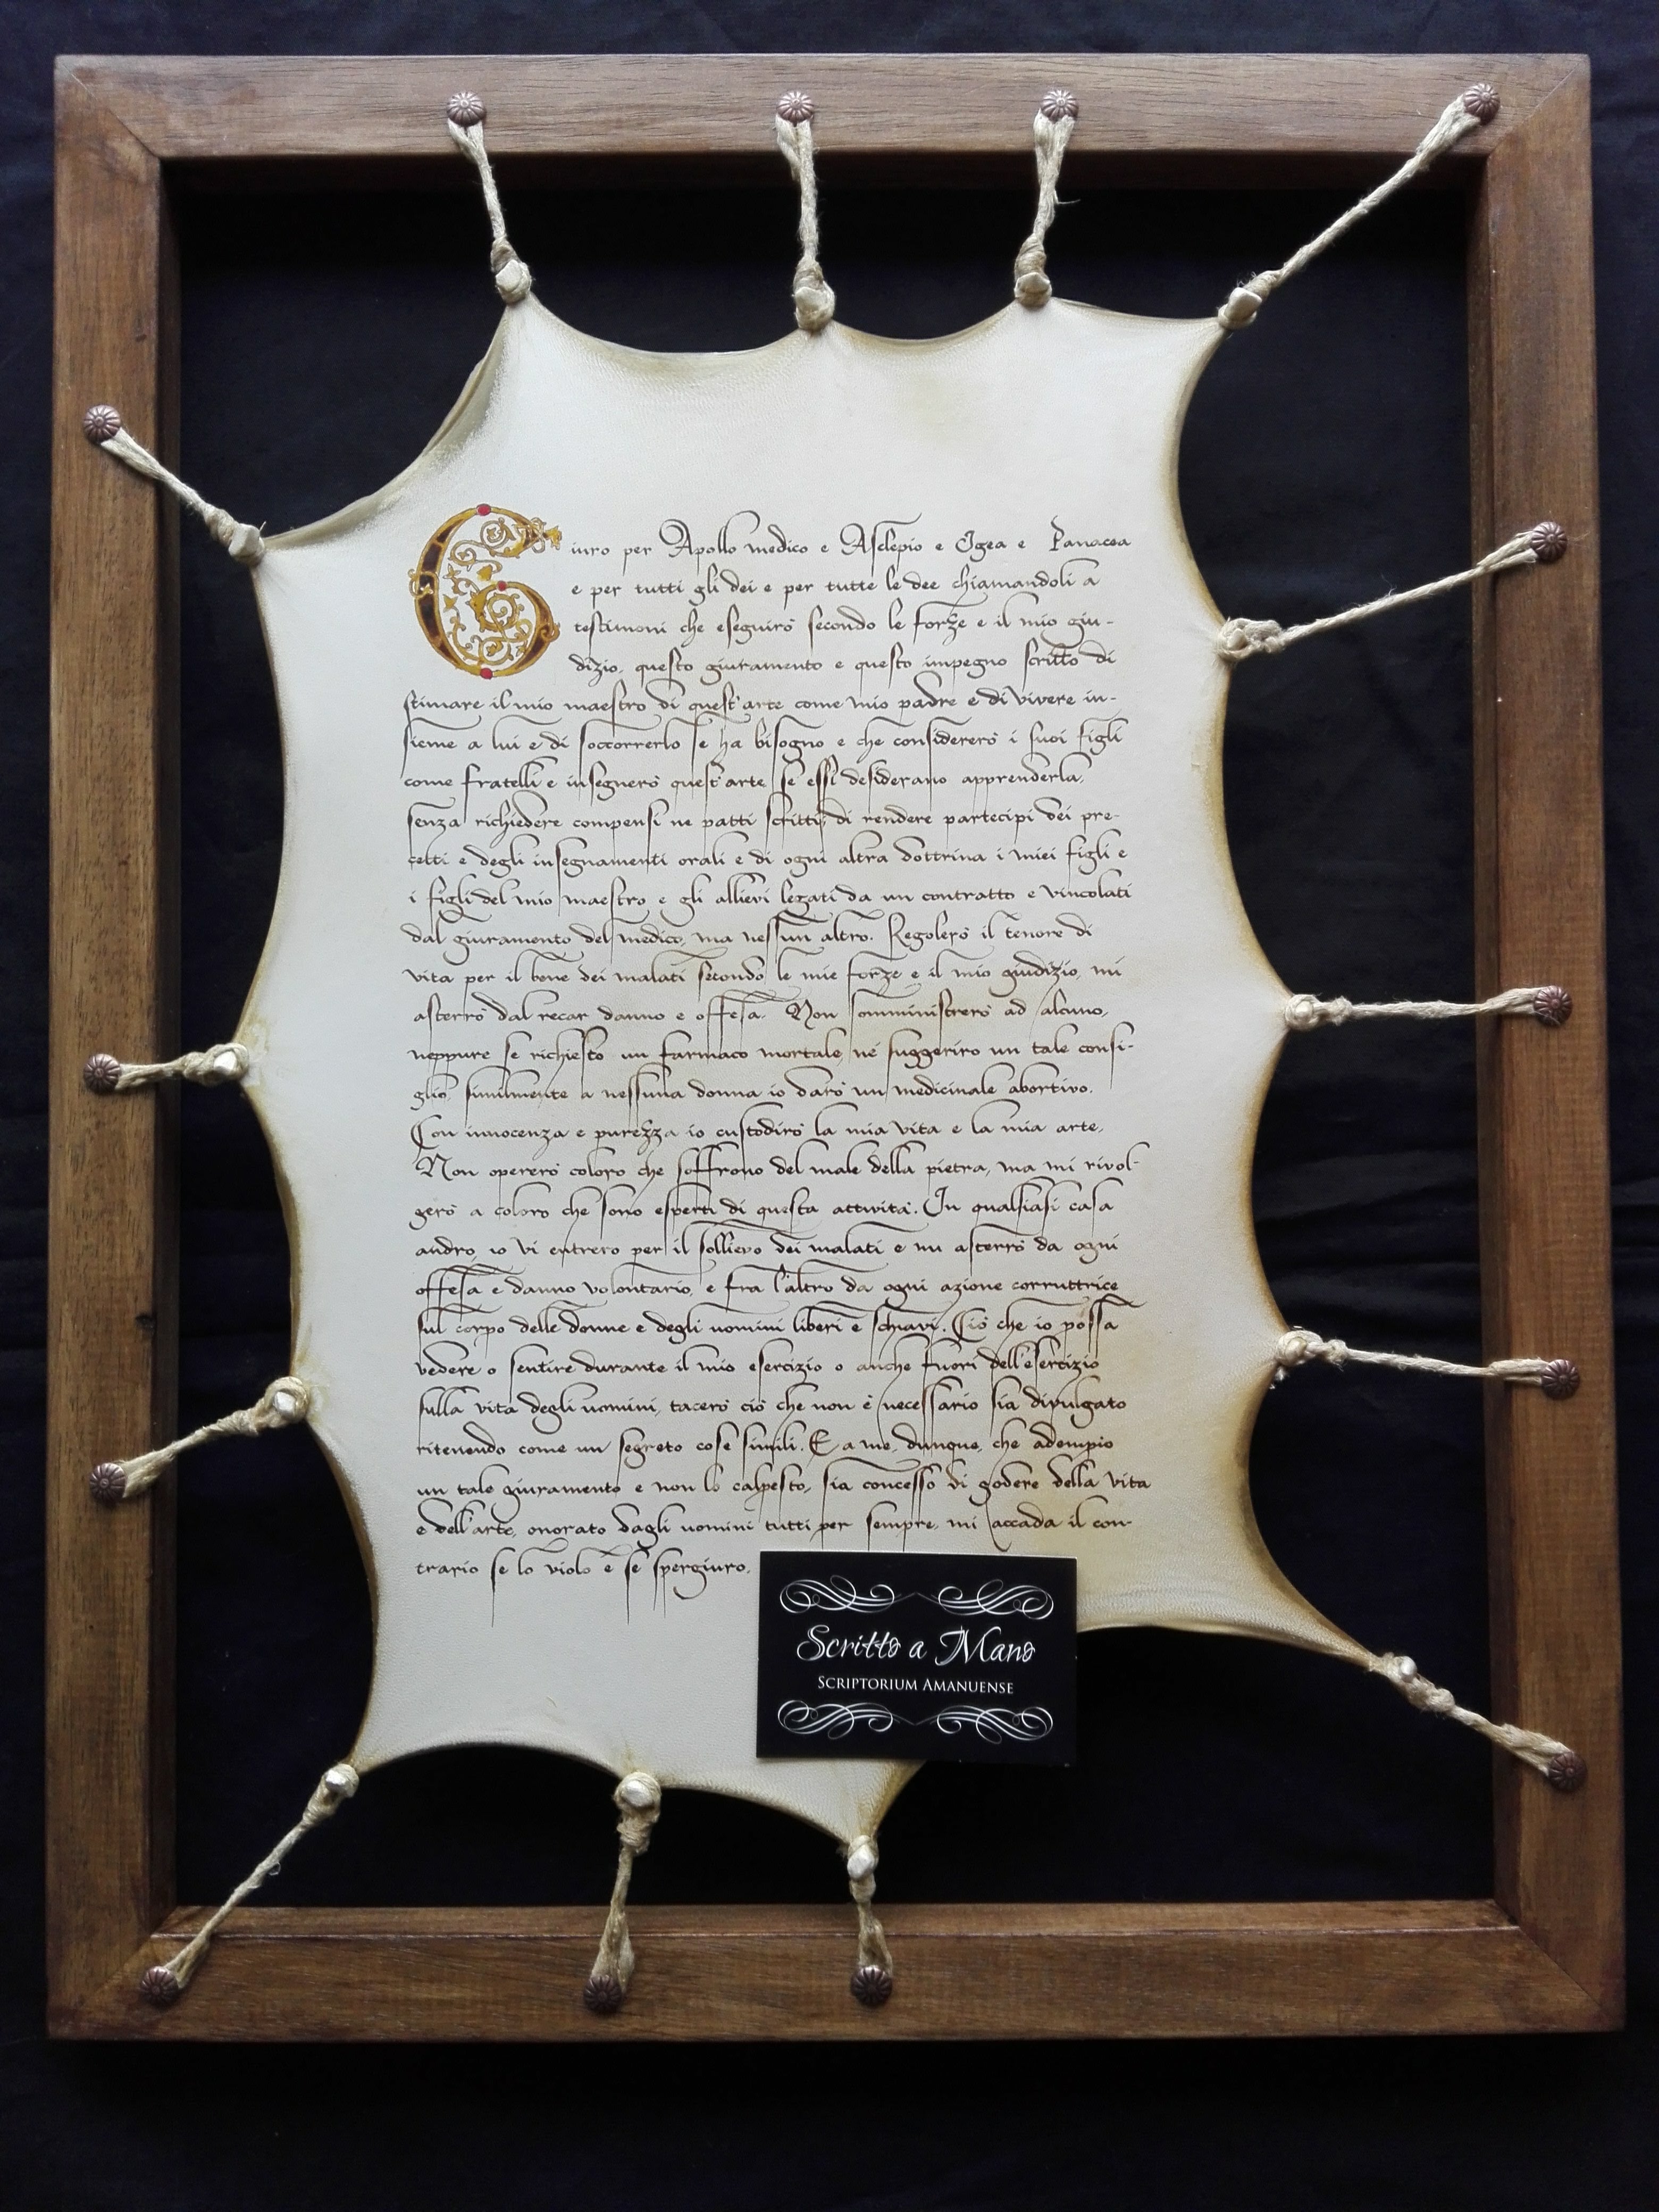 Giuro per Apollo medico e Asclepio e Igea e Panacea
e per tutti gli dei e per tutte le dee chiamandoli a
testimoni che eseguirò secondo le forze e il mio giu-
dizio, questo giuramento e questo impegno scritto di
stimare il mio maestro di quest'arte come mio padre e di vivere in-
sieme a lui e di soccorrerlo se ha bisogno e che considererò i suoi figli
come fratelli e insegnerò quest'arte se essi desiderano apprenderla,
senza richiedere compensi ne patti scritti; di rendere partecipi dei pre-
cetti e degli insegnamenti orali e di ogni altra dottrina i miei figli e
i figli del mio maestro e gli allievi legati da un contratto e vincolati
dal giuramento del medico, ma nessun altro. Regolerò il tenore di
vita per il bene dei malati secondo le mie forze e il mio giudizio, mi
asterrò dal recar danno e offesa. Non somministrerò ad alcuno,
neppure se richiesto un farmaco mortale, né suggerirò un tale consi-
glio, similmente a nessuna donna io darò un medicinale abortivo.
Con innocenza e purezza io custodirò la mia vita e la mia arte.
Non opererò coloro che soffrono del male della pietra, ma mi rivol-
gerò a coloro che sono esperti di questa attività. In qualsiasi casa
andrò, io vi entrerò per il sollievo dei malati e mi asterrò da ogni
offesa e danno volontario, e fra l'altro da ogni azione corruttrice
sul corpo delle donne e degli uomini liberi e schiavi. Ciò che io possa
vedere o sentire durante il mio esercizio o anche fuori dell'esercizio
sulla vita degli uomini, tacerò ciò che non è necessario sia divulgato
ritenendo come un segreto cose simili. E a me, dunque, che adempio
un tale giuramento e non lo calpesto, sia concesso di godere della vita
e dell'arte, onorato dagli uomini tutti per sempre, mi accada il con-
trario se lo violo e se spergiuro.
Scritto a Mano
SCRIPTORIUM AMANUENSE